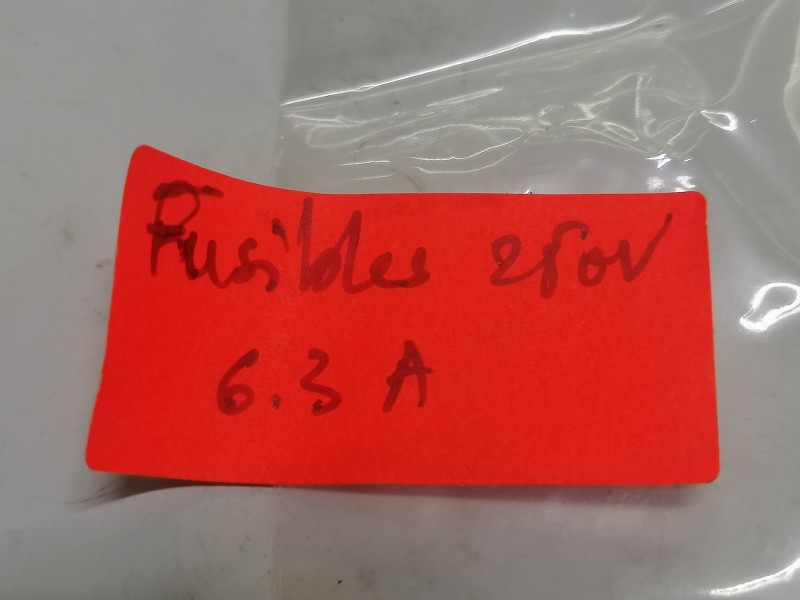 Fusibles 250V
6.3 A